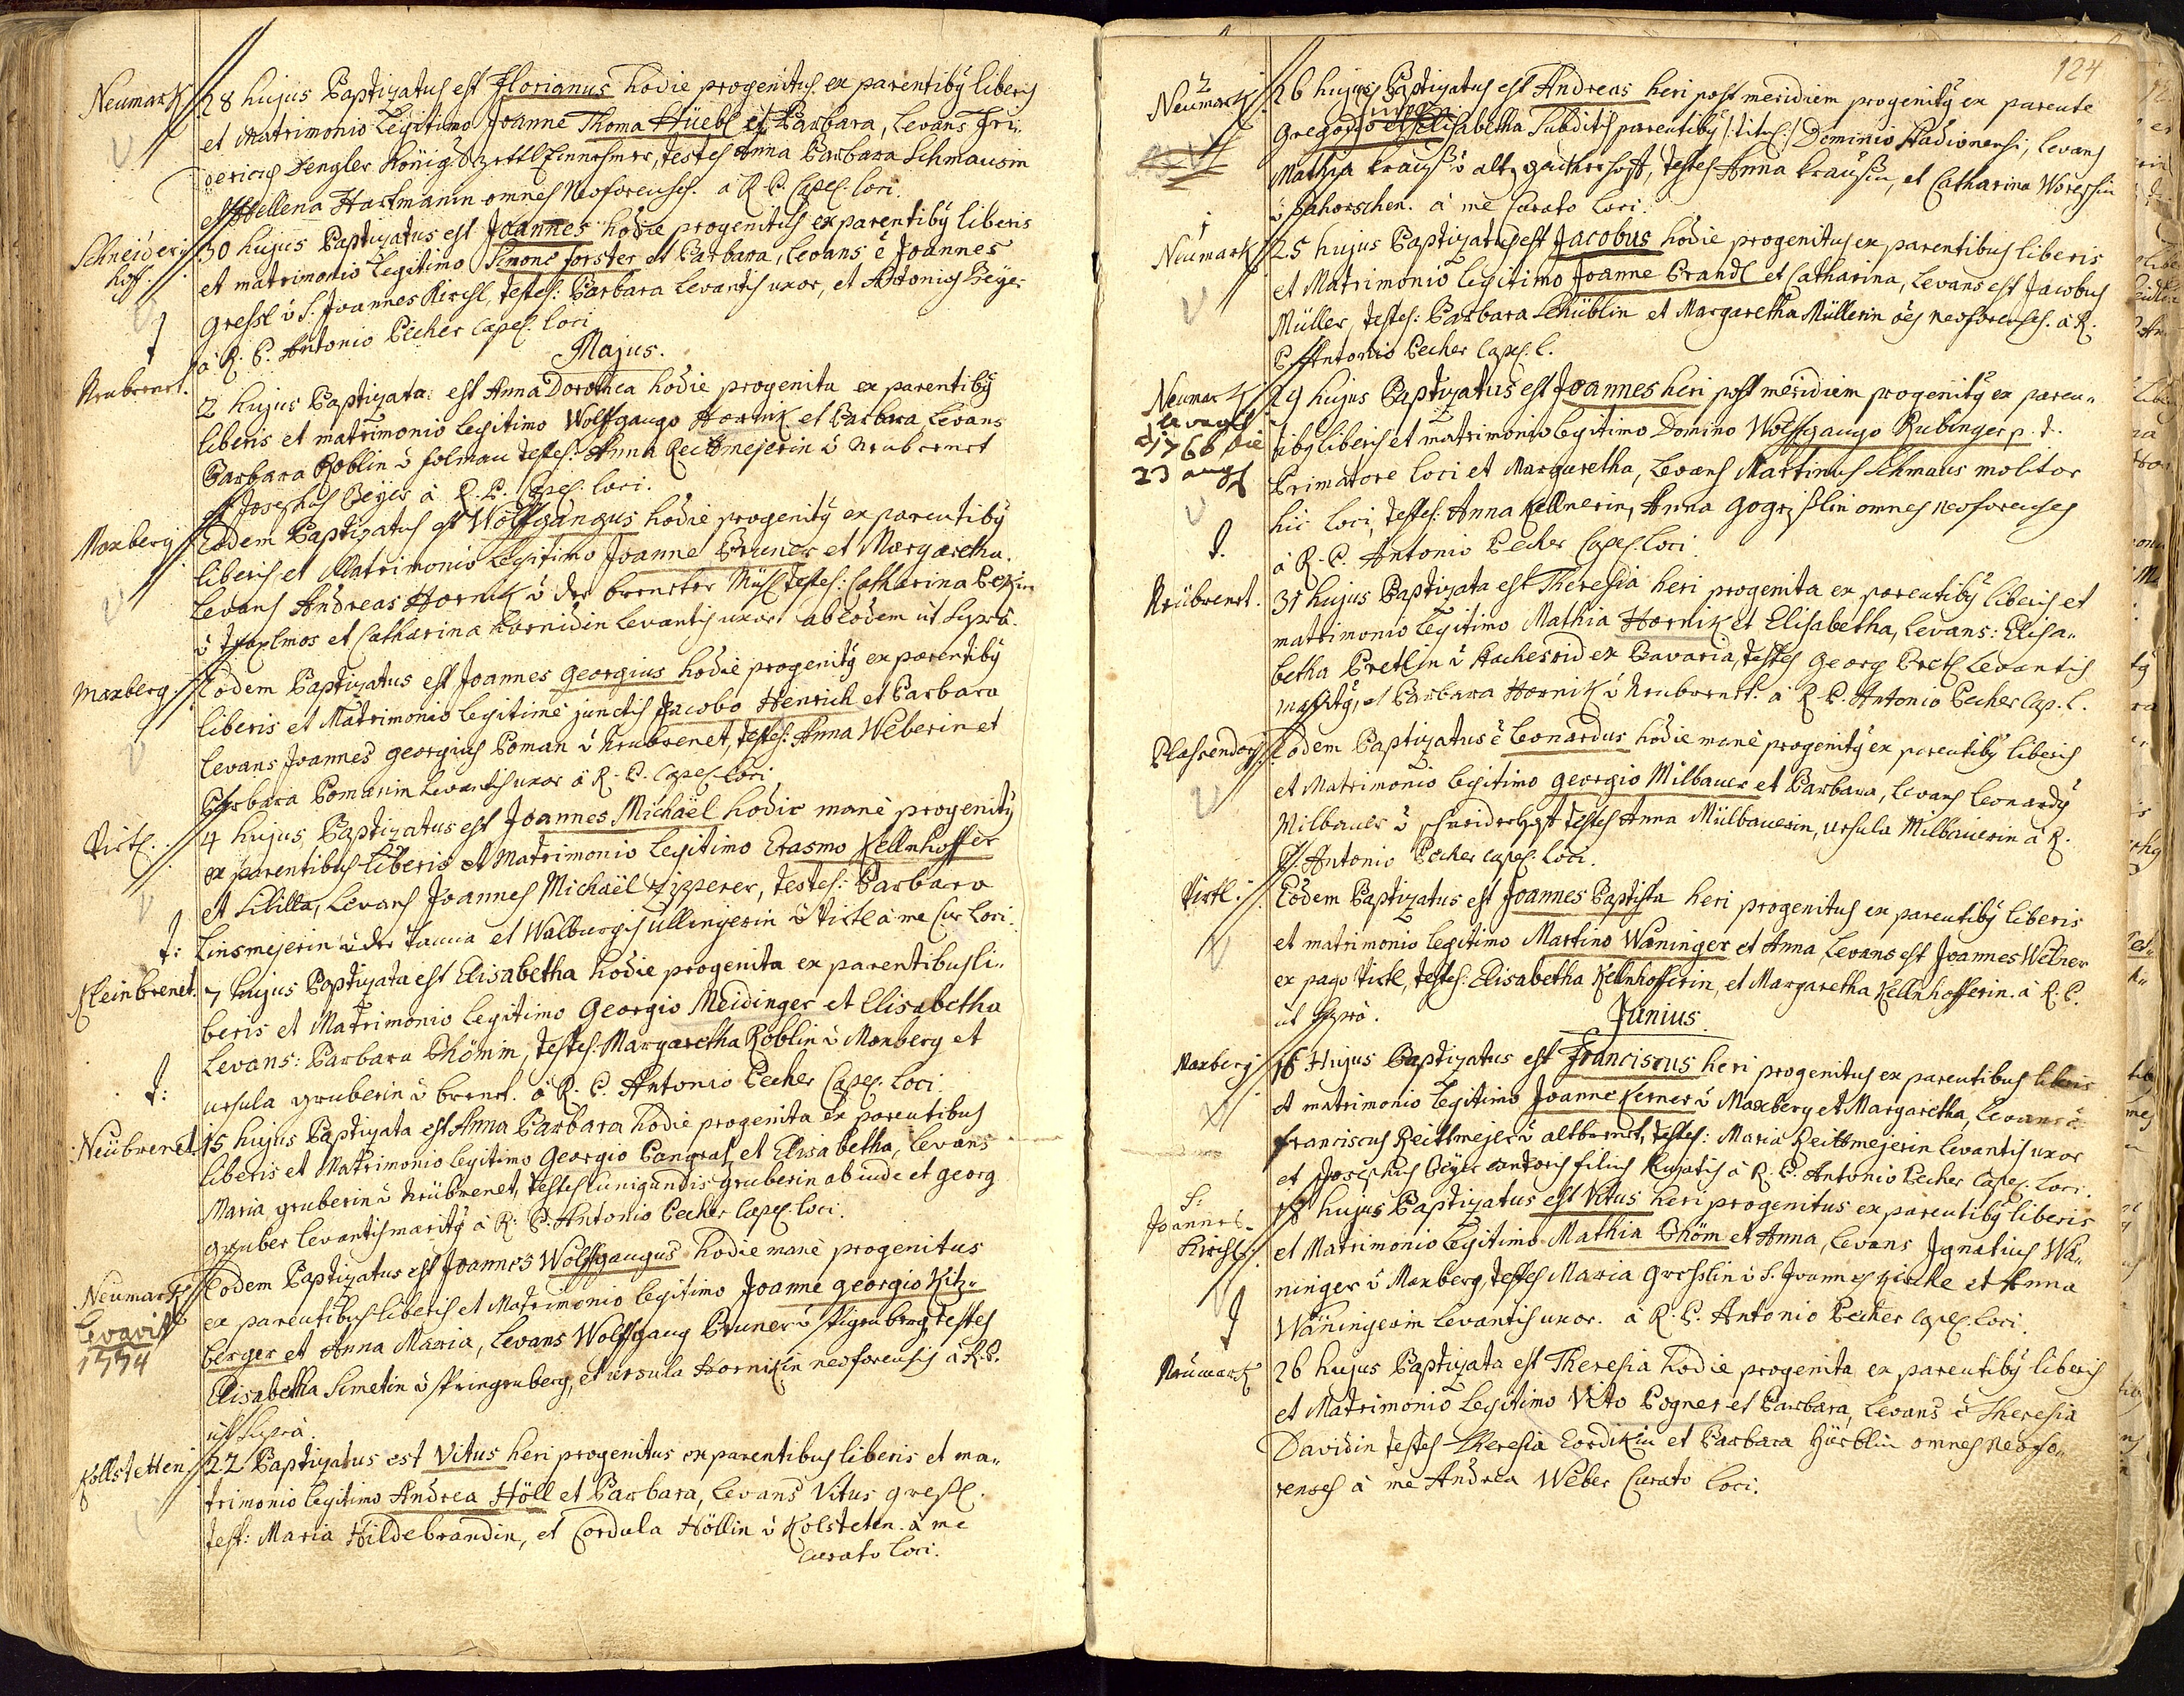 Neumark
28 hujus Baptizatus est Florianus hodie progenitus ex parentibq liberis
et Matrimonio Legitimo Joanne Thoma Hüebl et Barbara, Levans Fri:
dericus Dengler Königl Zettl Einnehmer, testes Anna Barbara Schmausin
et Hellena Hartmanin omnes Neoforenses. à R. P. Capel. loci.
Schneider
hoff.
30 hujus Baptizatus est Joannes hodie progenitus ex parentibq liberis
et matrimonio Legitimo Simone forster et Barbara, Levans ē Joannes
Gressl ù S. Joannes Kirchl, testes: Barbara Levantis uxor, et Antonius Beyer
à R. P. Antonio Pecher Capel. loci
Majus.
Neubrenet.
2 hujus Baptizata est Anna Dorothea hodie progenita ex parentibq
liberis et matrimonio legitimo Wolffgango Hornik et Barbara, Levans
Barbara Roblin ù folmau testes: Anna Reittmejerin ù Neubrenet
et Josephus Beyer à R. P. Capel. loci.
Maxberg
Eodem Baptizatus est Wolffgangus hodie progenitq ex parentibq
liberis et Matrimonio Legitimo Joanne Bruner et Margaretha.
Levans Andreas Hornik ù der brenster Mühl testes: Catharina
et Catharina hornickin Levantis uxor ab eodem ut supra.
Maxberg.
Eodem Baptizatus est Joannes Georgius hodie progenitq ex parentibq
liberis et Matrimonio legitime junctis Jacobo Henrich et Barbara
Levans Joannes georgius Poman ù Neubrenet, testes: Anna Weberin et
Barbara Pomanin Levantis uxor à R. P. Capel. loci
Viertl.
4 hujus Baptizatus est Joannes Michaël hodie manè progenitq
ex parentibus liberis et Matrimonio legitimo Erasmo Kellnhoffer
et Sibilla, Levans Joannes Michaël Zipperer, testes: Barbara
t: Linsmejerin ù der Tanna et Walburgis Ullingerin ù Viertl à me Cur Loci.
Kleinbrenet.
7 hujus Baptizata est Elisabetha hodie progenita ex parentibus li-
beris et Matrimonio Legitimo Georgio Meidinger et Elisabetha
Levans: Barbara Böhmin, testes: Margaretha Roblin ù Maxberg et
t: ursula gruberin ù brenet. à R. P. Antonio Pecher Capel. Loci.
Neübrenet
15 hujus Baptizata est Anna Barbara hodie progenita ex parentibus
liberis et Matrimonio Legitimo Georgio Pangraz et Elisabetha, Levans
Maria gruberin ù Neübrenet, testes Cunigundis gruberin ab inde et georg
gruber Levantis maritq à R. P. Antonio Pecher Capel. loci.
Neumark
Levavit
1774
Eodem Baptizatus est Joannes Wolffgangus hodie manè progenitus
ex parentibus liberis et Matrimonio legitimo Joanne georgio Kitz-
berger et Anna Maria, Levans Wolffgang Bruner ù Springenberg, testes
Elisabetha Simetin ù Springenberg, et ursula Hornikin neoforensis à R. P.
ut supra.
Kollstetten
22 Baptizatus est Vitus heri progenitus ex parentibus liberis et ma-
trimonio legitimo Andrea Höll et Barbara, Levans Vitus greßl.
test: Maria Hildebrandin, et Cordula Höllin ù Kolsteten. à me
curato loci.
124
2
Neumark
26 hujus Baptizatus est Andreas heri post meridiem progenitq ex parente
Gregorio et Elisabetha Subditis parentibq /: titul :/ Dominio Stadionensi, Levans
Mathia krauß ù altz gütterhoff, testes Anna kraußin, et Catharina Woressin
à me Curato loci.
1
Neumark
25 hujus Baptizatus est Jacobus hodie progenitus ex parentibus liberis
et Matrimonio Legitimo Joanne Brandl et Catharina, Levans est Jacobus
Müller, testes: Barbara Schüblin et Margaretha Müllerin oēs neoforenses. à R.
P. Antonio Pecher Capel. l.
Neumark
levavit
1766 die
23 augs
29 hujus Baptizatus est Joannes heri post meridiem progenitq ex paren-
tibq liberis et matrimonio legitimo Domino Wolffgango Rubinger p. t.
Primatore loci et Margaretha, Levans Martinus Schmaus molitor
hic loci, testes: Anna Kellnerin, Anna omnes neoforenses
à R. P. Antonio Pecher Capel. Loci.
Neübrenet.
31 hujus Baptizata est Theresia heri progenita ex parentibq liberis et
matrimonio Legitimo Mathia Hornik et Elisabetha, Levans: Elisa-
betha Bretlin ù ex Bavaria, testes Georg Bretl Levantis
maritq, et Barbara Hornik ù Neubrenet. à R. P. Antonio Pecher Cap. l.
Plassendorf.
Eodem Baptizatus ē Leonardus hodie manè progenitq ex parentibq liberis
et Matrimonio legitimo georgio Milbauer et Barbara, Levans Leonardq
Milbauer ù schneiderhoff testes Anna Mülbauerin, ursula Milbauerin à R.
P. Antonio Pecher capel. loci.
Viertl.
Eodem Baptizatus est Joannes Baptista heri progenitus ex parentibq liberis
et matrimonio legitimo Martino Waninger et Anna, Levans est Joannes Welner
ex pago Viertl, testes: Elisabetha Kellnhofferin, et Margaretha Kellnhofferin. à R. P.
ut supra.
Junius.
Maxberg
16 Hujus Baptizatus est Franciscus heri progenitus ex parentibus liberis
et matrimonio legitimo Joanne Kerner ù Maxberg et Margaretha, Levans ē
franciscus Reittmejer ù altbrenet, testes: Maria Reittmejerin Levantis uxor
et Josephus Beyer cantoris filius hujatis à R. P. Antonio Pecher Capel. Loci.
S:
Joannes-
Kirchl.
18 hujus Baptizatus est Vitus heri progenitus ex parentibq liberis
et Matrimonio legitimo Mathia Böhm et Anna, Levans Ignatius Wa-
ninger ù Maxberg, testes Maria Gresslin ù S. Joannes Kirche et Anna
Waningerin Levantis uxor. à R. P. Antonio Pecher capel. loci.
Neumark
26 hujus Baptizata est Theresia hodie progenita ex parentibq liberis
et Matrimonio legitimo Vito Pogner et Barbara, Levans ē Theresia
Davidin testes Theresia Cordikin et Barbara Hüeblin omnes neofo-
renses à me Andrea Weber Curato loci.